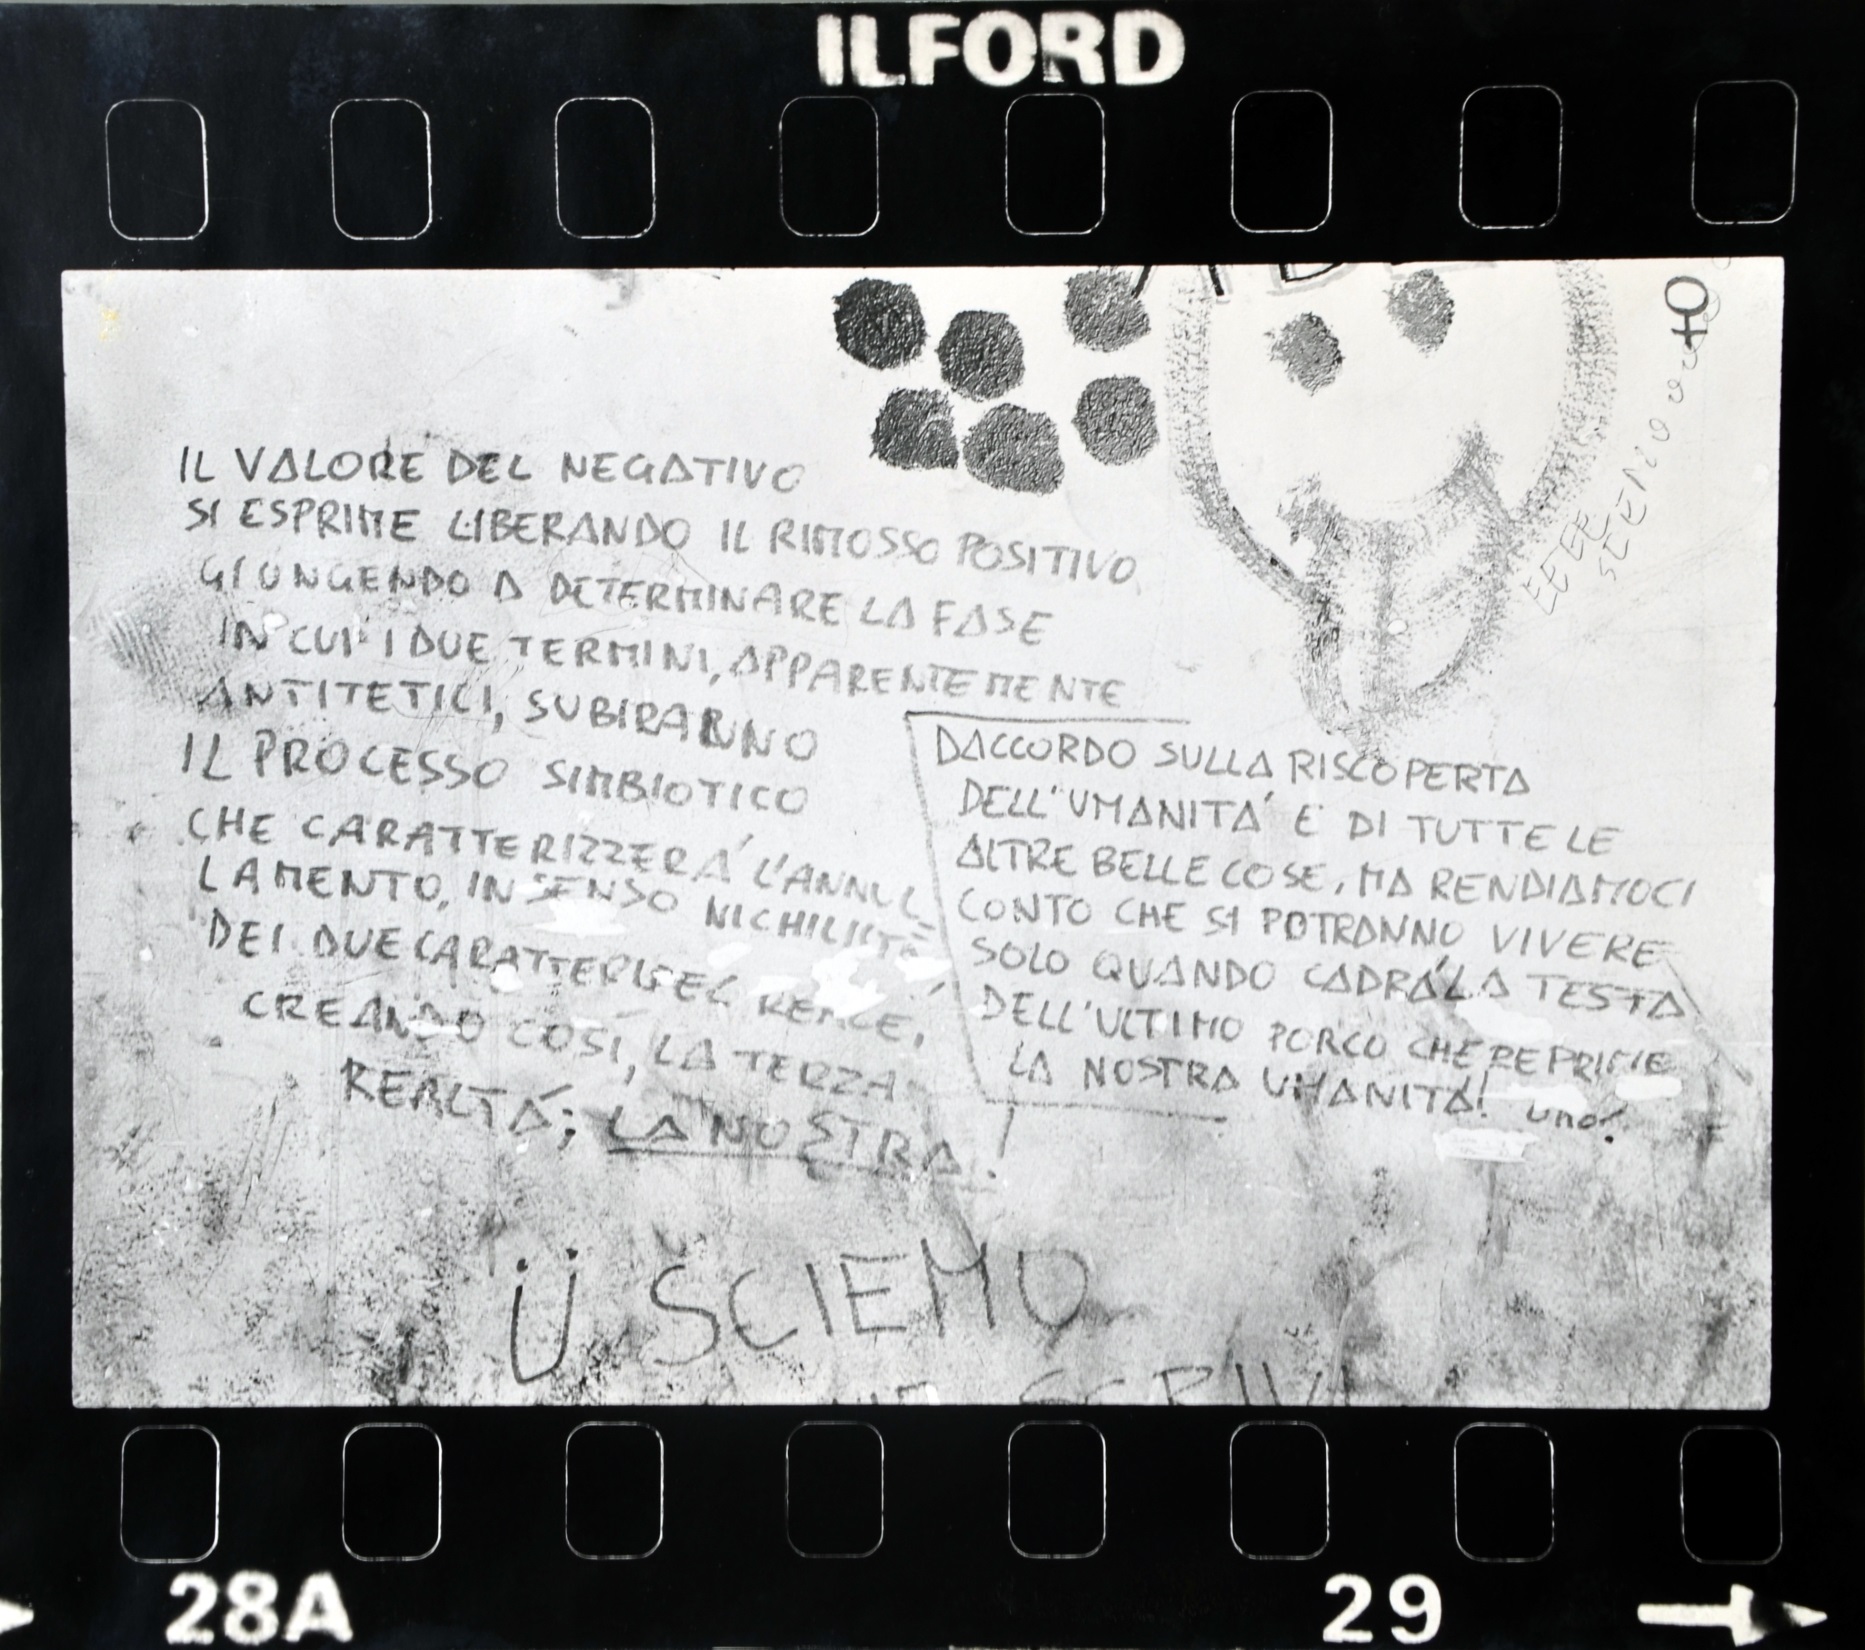 ILFORD
IL VALORE DEL NEGATIVO
SI ESPRIME LIBERANDO IL RIMOSSO POSITIVO
GIUNGENDO A DETERMINARE LA FASE
IN CUI I DUE TERMINI, APPARENTEMENTE
ANTITETICI, SUBIRANNO
IL PROCESSO SIMBIOTICO
CHE CARATTERIZZERÁ L'ANNUL=
LAMENTO, IN SENSO NICHILISTA,
DEI DUE CARATTERI DEL REALE,
CREANDO COSÍ, LA TERZA
REALTÁ; LA NOSTRA!
DACCORDO SULLA RISCOPERTA
DELL'UMANITÁ E DI TUTTE LE
ALTRE BELLE COSE, MA RENDIAMOCI
CONTO CHE SI POTRANNO VIVERE
SOLO QUANDO CADRÁ LA TESTA
DELL'ULTIMO PORCO CHE REPRIME
LA NOSTRA UMANITÁ! uno!
EEEEE
SCEMO
Ü SCIEMO
SCRIVI
28A
29